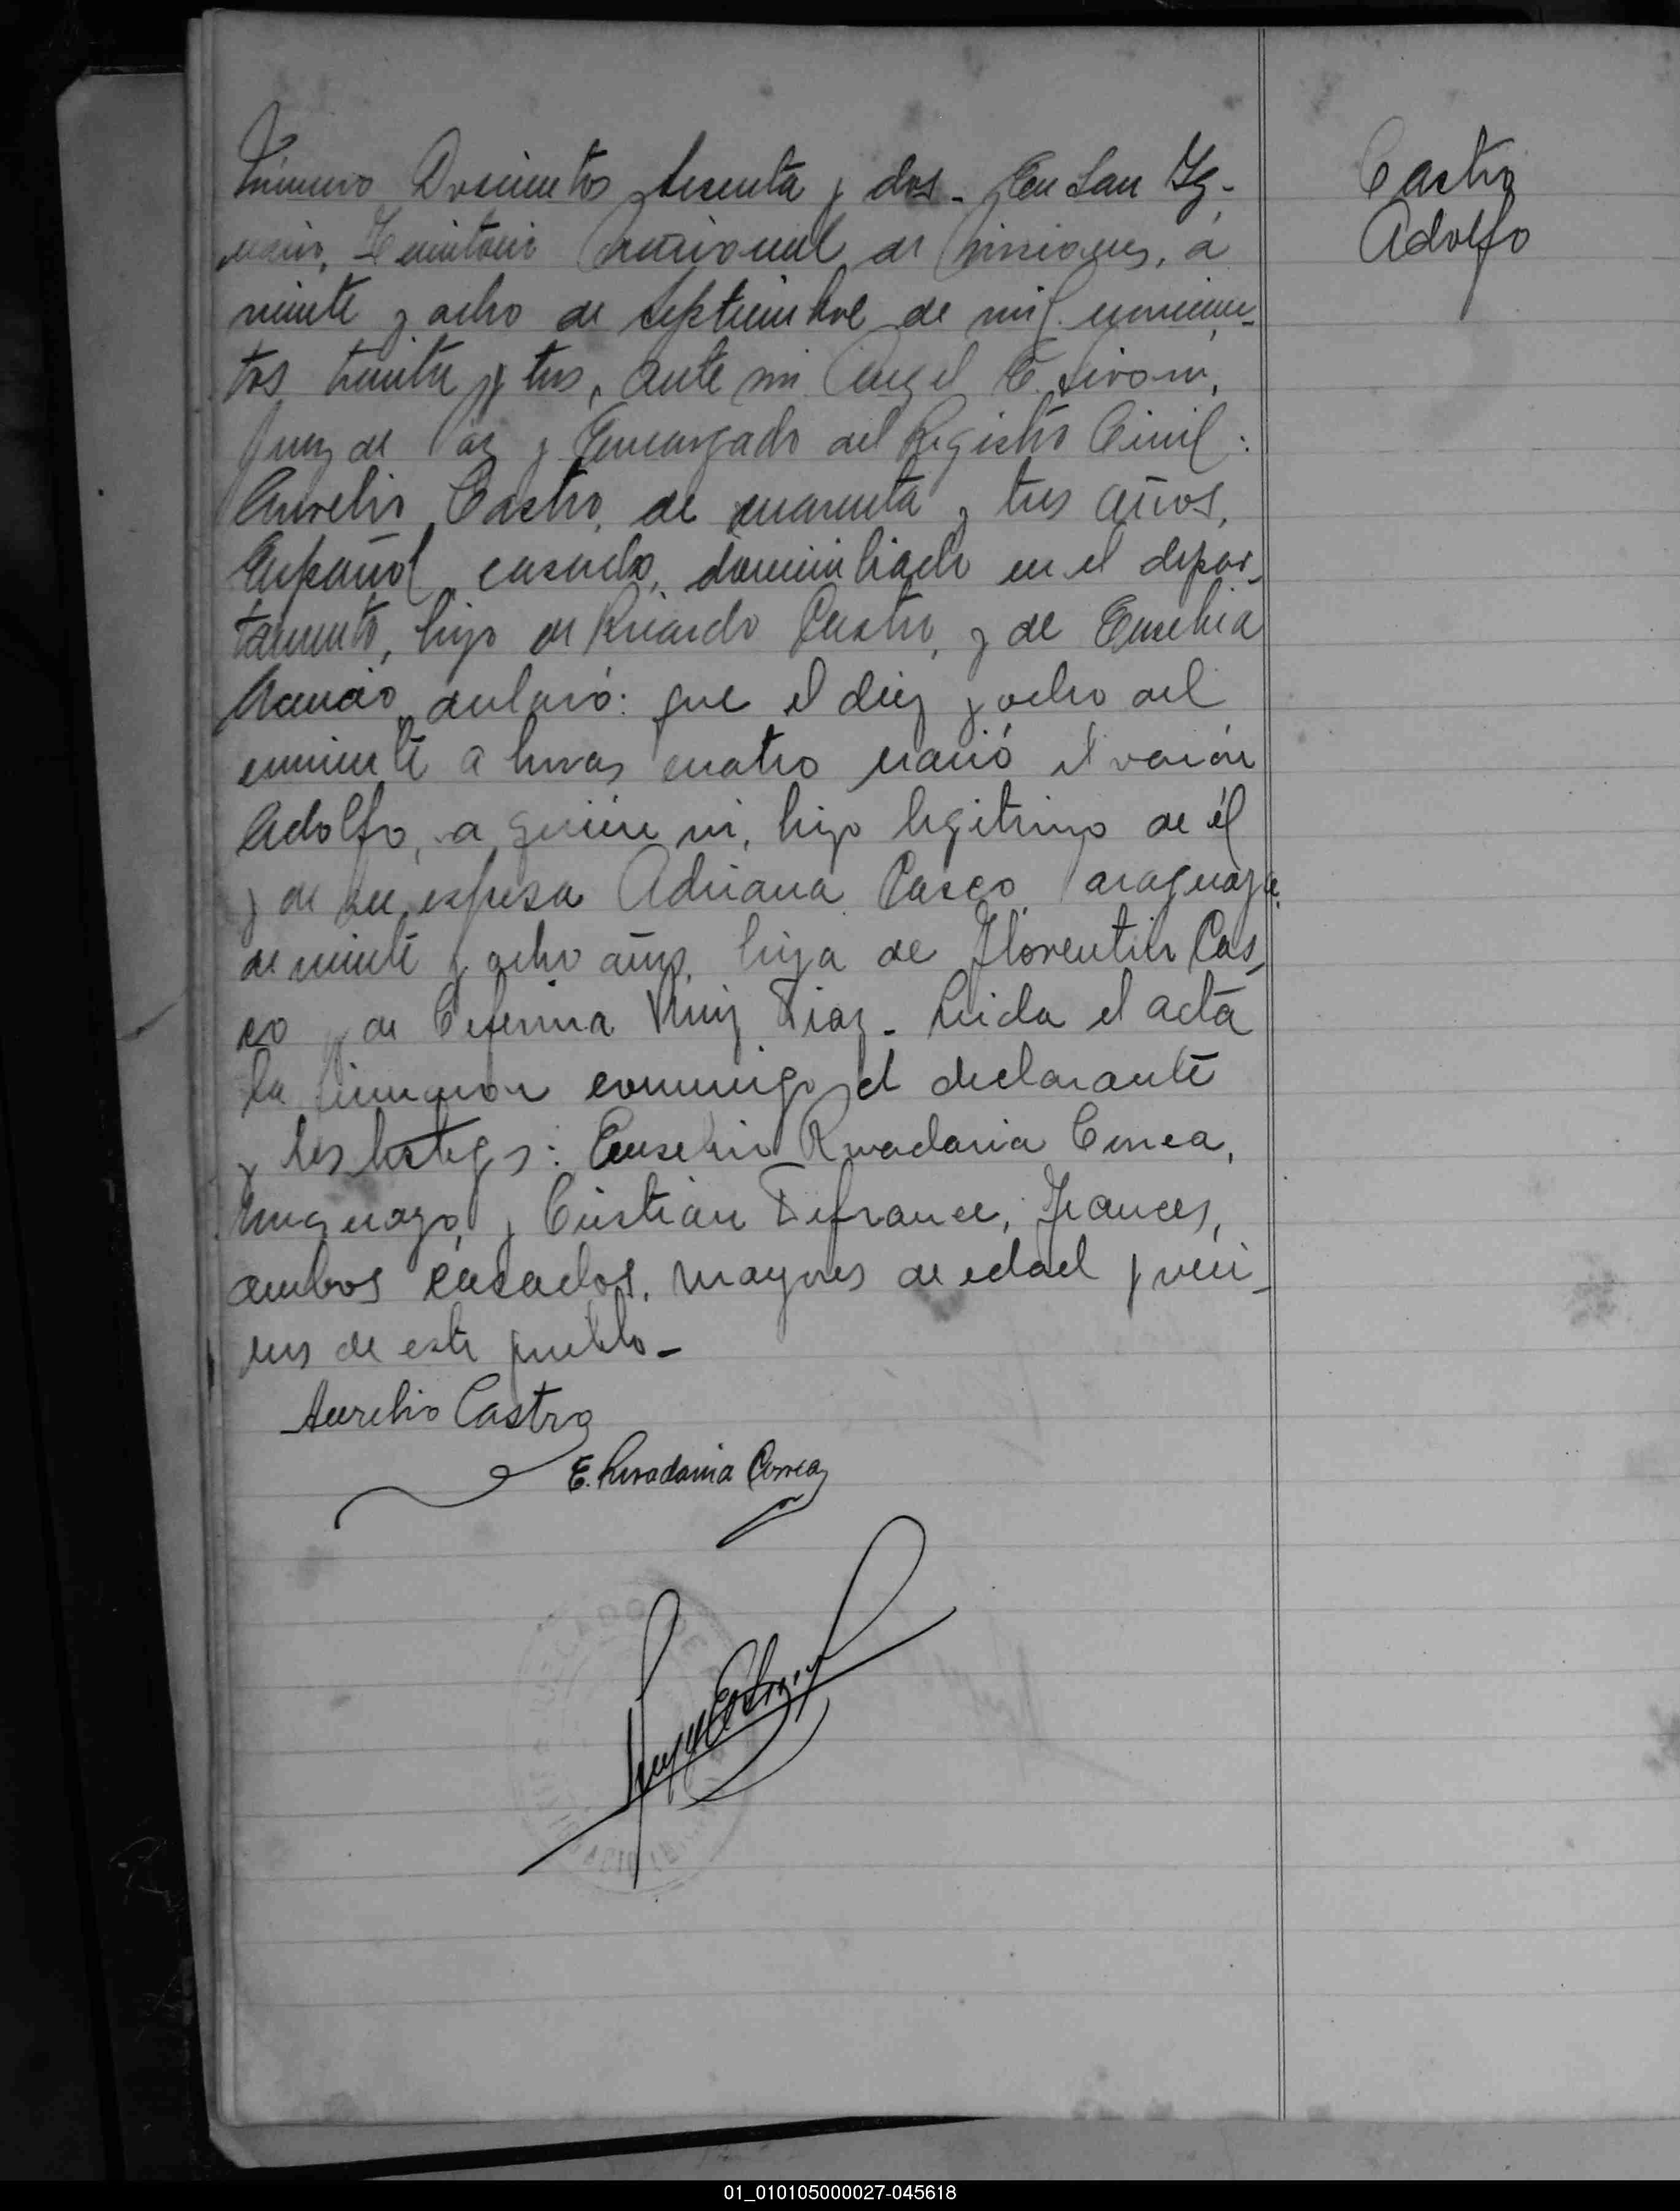 Número Doscientos sesenta y dos - En San Ig-
nacio, Territorio Nacional de Misiones, a
veinte y ocho de septiembre de mil novecien-
tos treinta y tres, ante mi Angel E.
Juez de Paz y Encargado del Registro Civil:
Aurelio Castro, de cuarenta y tres años,
Español, casado, domiciliado en el depar-
tamento, hijo de Ricardo Castro, y de Eusebia
declaró: que el diez y ocho del
corriente a horas cuatro nació el varón
Adolfo, a quien vi, hijo legitimo de él
y de su esposa Adriana Casco, Paraguaya,
de veinte y ocho años, hija de Florentin Cas-
co y de Ceferina Ruiz Diaz - Leida el acta
la firmaron conmigo el declarante
y los testigos: Eusebio Rivadania Correa,
Uruguayo, y Cristian Defrance, Frances,
ambos casados, mayores de edad y veci-
nos de este pueblo -
Castro
Adolfo
Aurelio Castro
E. Rivadania Correa
01_010105000027-045618